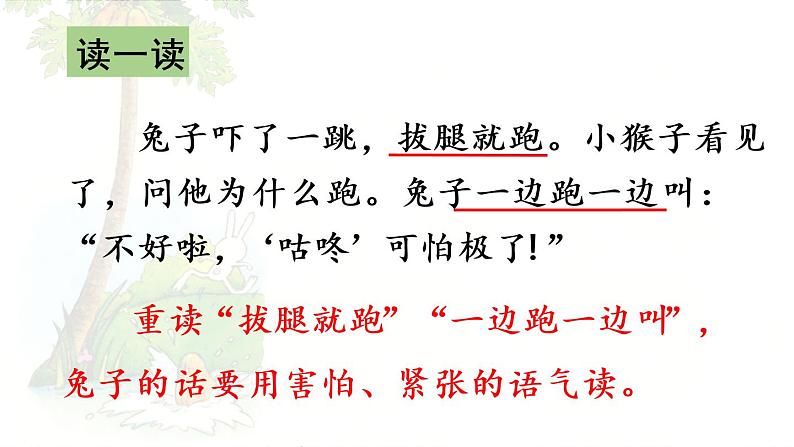 读一读
兔子吓了一跳，拔腿就跑。小猴子看见
了，问他为什么跑。兔子一边跑一边叫：
“不好啦，‘咕咚’可怕极了！”
重读“拔腿就跑”“一边跑一边叫”，
兔子的话要用害怕、紧张的语气读。